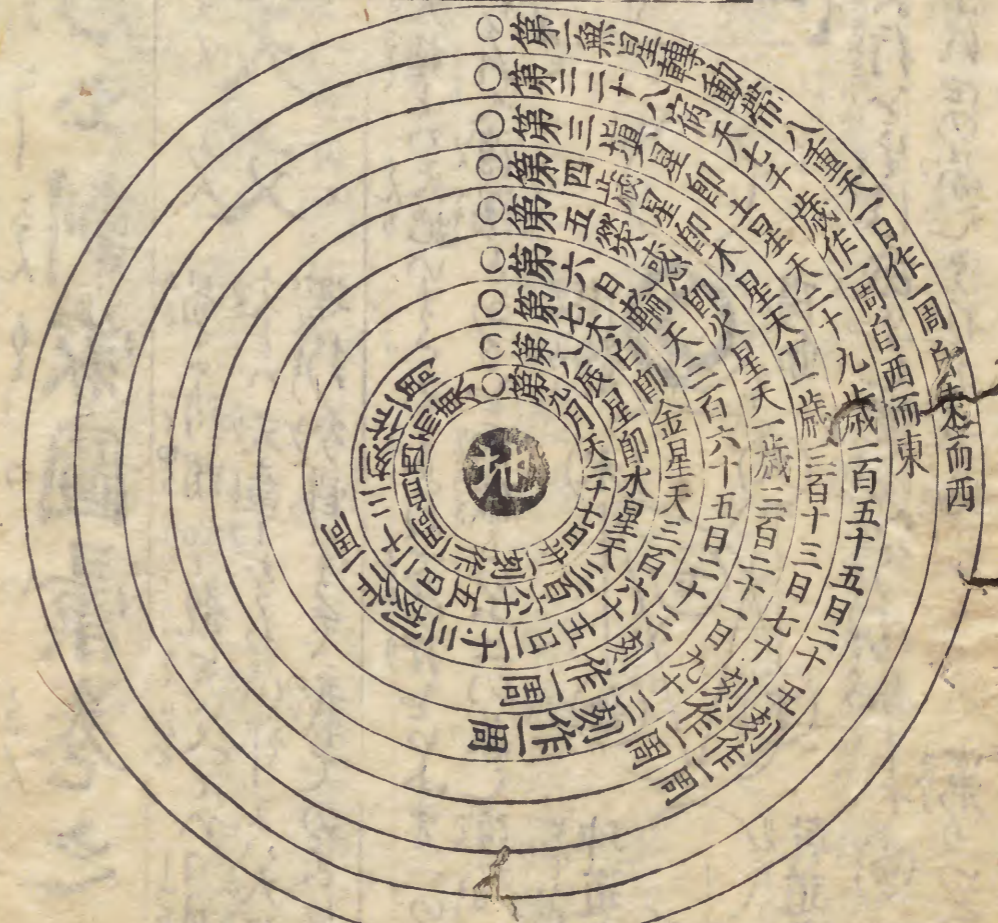 ○第一無星轉動帶八重天一日作一周自東而西
○第二二十八宿天七千歲作一周自西而東
○第三填星即土星天二十九歲一百五十五日二十五刻作一周
○第四歲星即木星天十一歲三百十三日七十刻作一周
○第五熒惑即火星天一歲三百二十一日九十三刻作一周
○第六日輪天三百六十五日二十三刻作一周
○第七太白即金星天三百六十五日二十三刻作一周
○第八辰星即水星天三百六十五日二十三刻作一周
○第九月天二十七日刻作一周
地